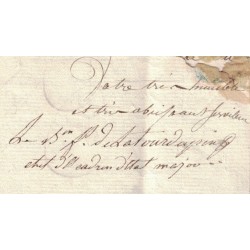 Votre très humble
et très obéissant serviteur
Le B.on f. de Latourdupin
chef d'Escadron d'Etat major